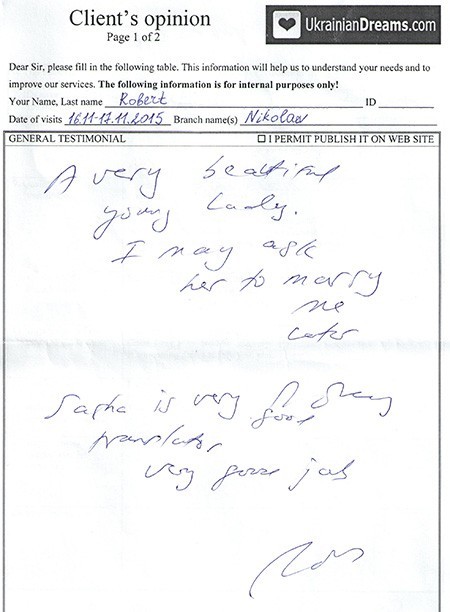 Client's opinion
Page 1 of 2
UkrainianDreams.com
Dear Sir, please fill in the following table. This information will help us to understand your needs and to
improve our services. The following information is for internal purposes only!
Your Name, Last name Robert ID
Date of visits 16.11-17.11.2015 Branch name(s) Nikolaev
GENERAL TESTIMONIAL ☐ I PERMIT PUBLISH IT ON WEB SITE
A very beatiful
young Lady.
I may ask
her to marry
me
later
Sasha is very good
translator
very good job